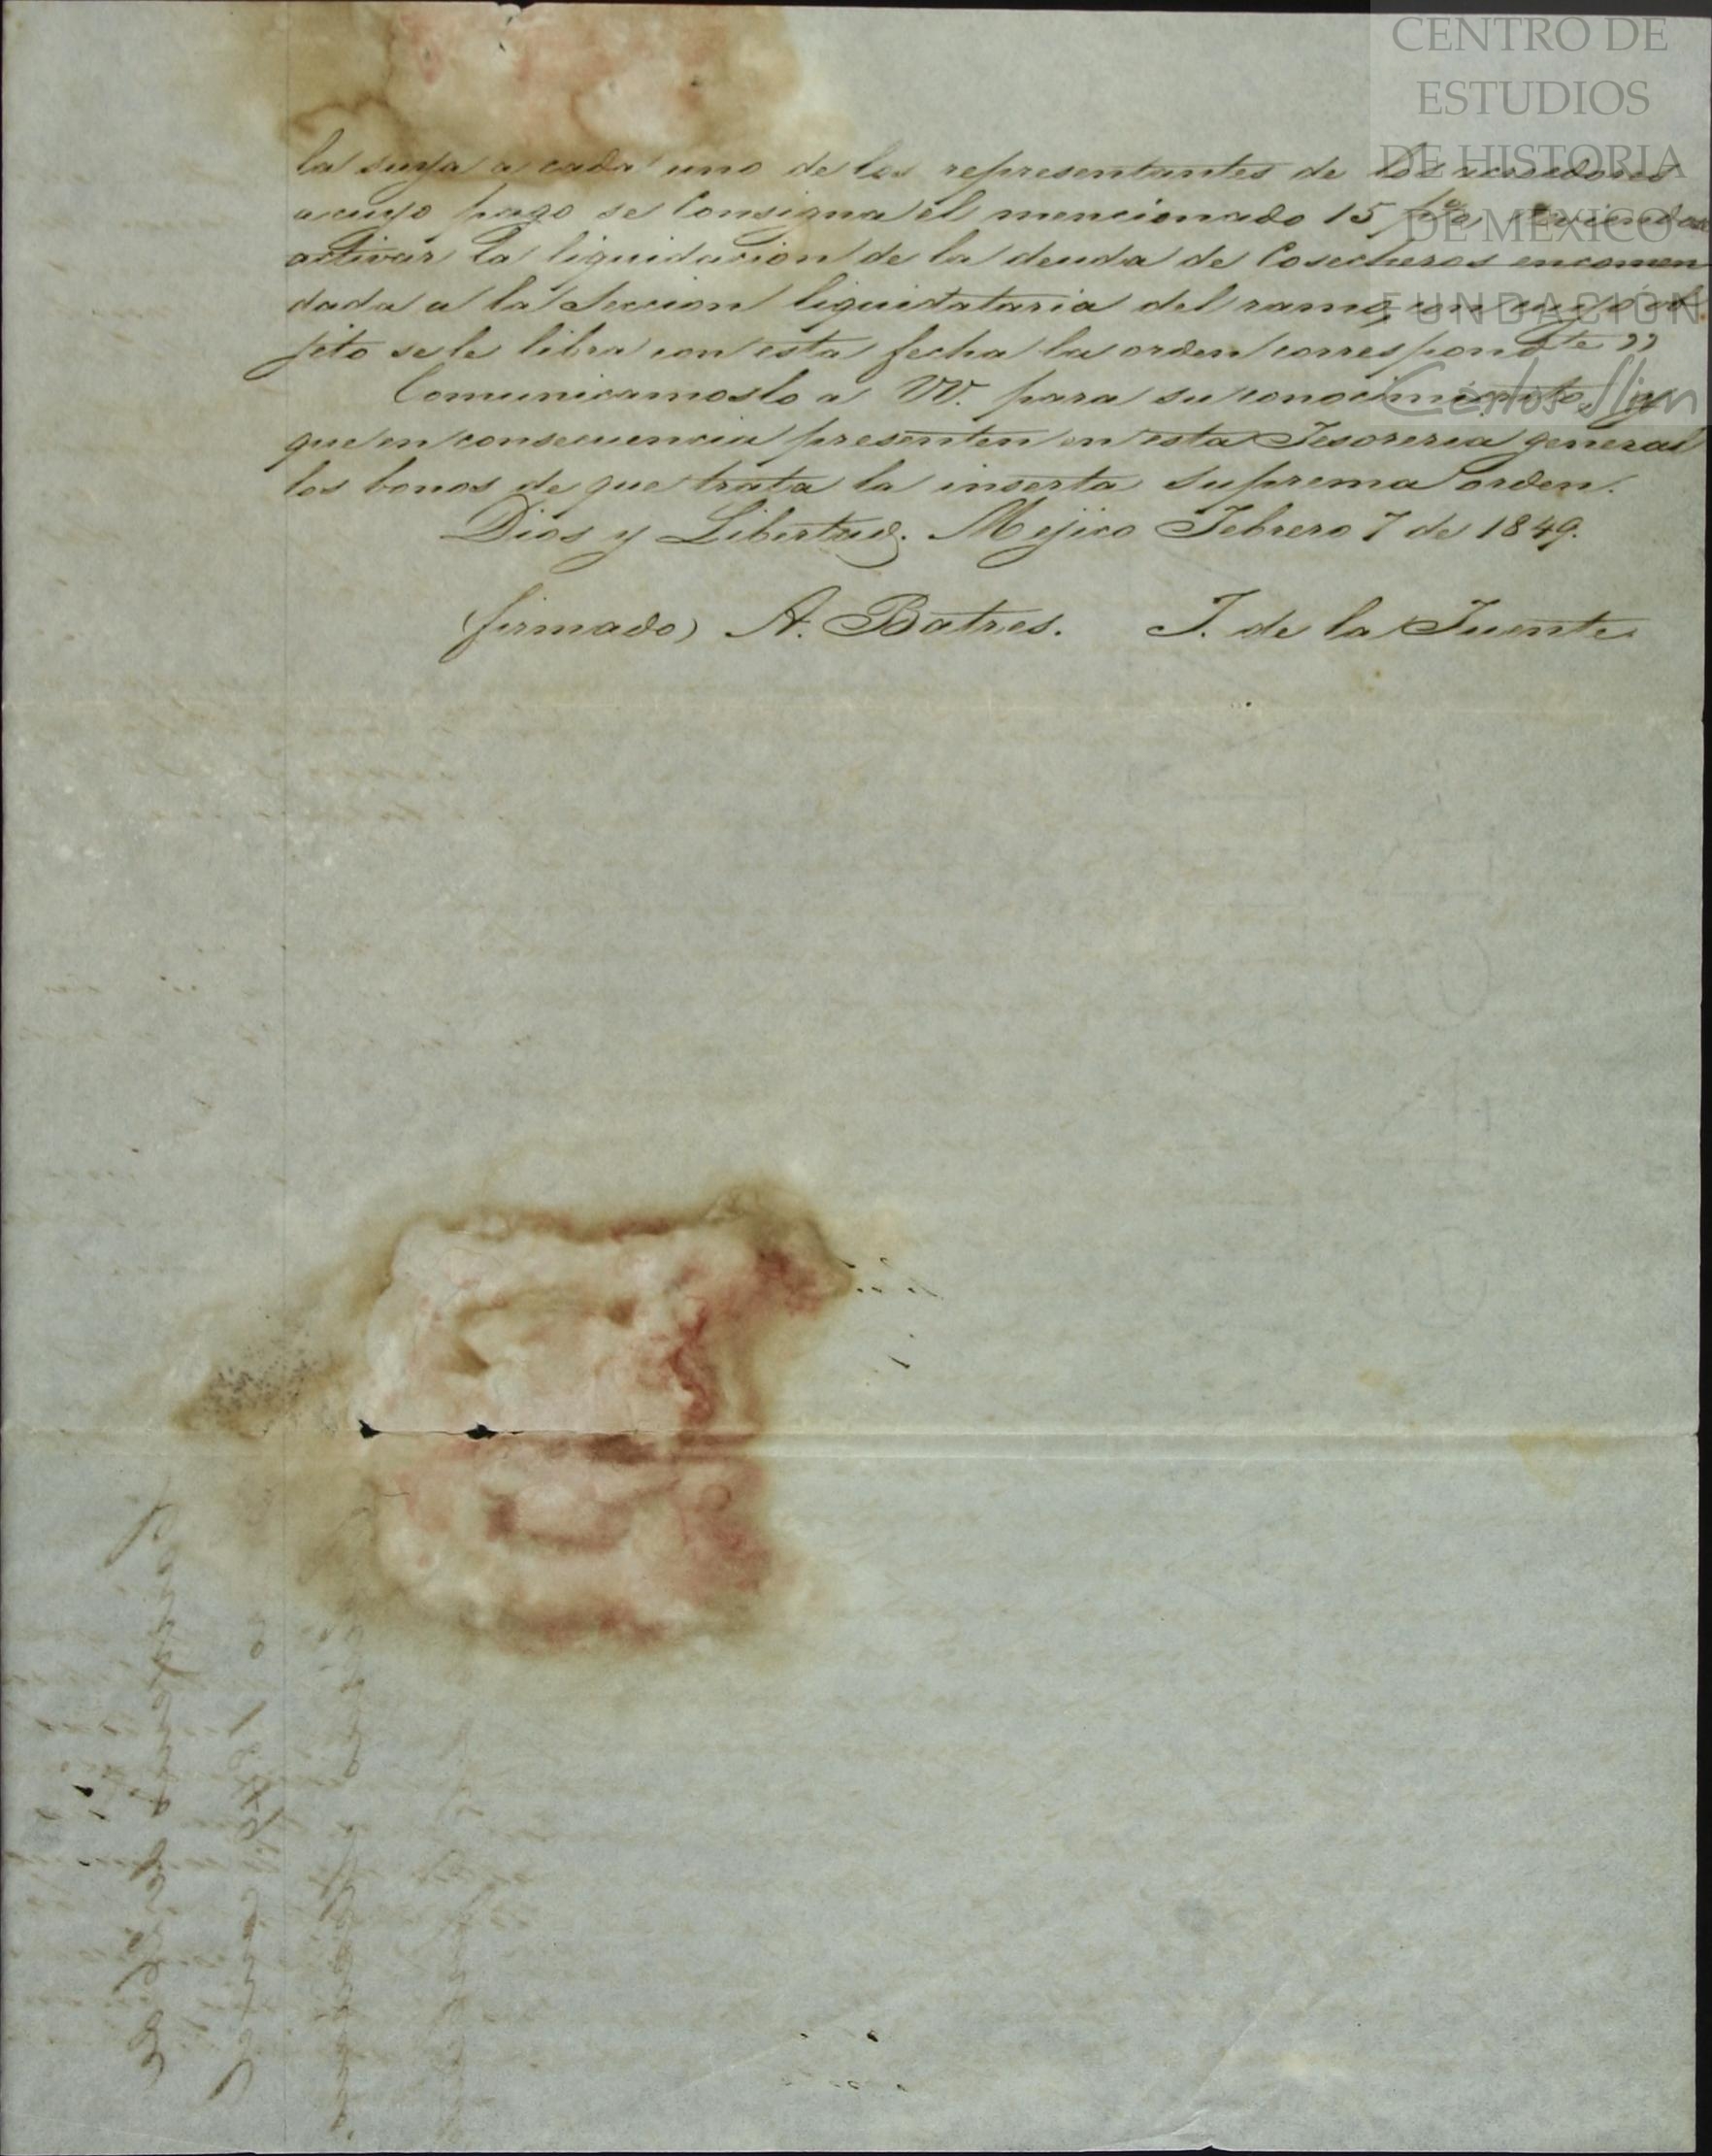 la suya a cada uno de los representantes de los acreedores
a cuyo pago se consigna el mencionado 15 p%
activar la liquidacion de la deuda de Cosecheros encomen
dada a la Seccion liquidataria del ramo, con cuyo ob
jeto se le libra con esta fecha la orden correspondte"
Comunicamoslo a VV. para su conocimiento, y
que en consecuencia presenten en esta Tesoreria general
los bonos de que trata la inserta suprema orden.
Dios y Libertad. Mejico Febrero 7 de 1849.
(firmado) A. Batres. F. de la Fuente
CENTRO DE
ESTUDIOS
DE HISTORIA
DE MÉXICO
FUNDACIÓN
Carlos Slim